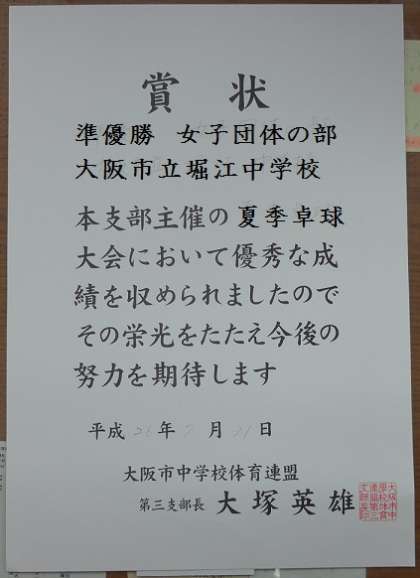 賞状
準優勝 女子団体の部
大阪市立堀江中学校
本支部主催の 夏季卓球
大会において優秀な成
績を収められましたので
その栄光をたたえ今後の
努力を期待します
平成 年 月 日
大阪市中学校体育連盟
第三支部長 大塚英雄